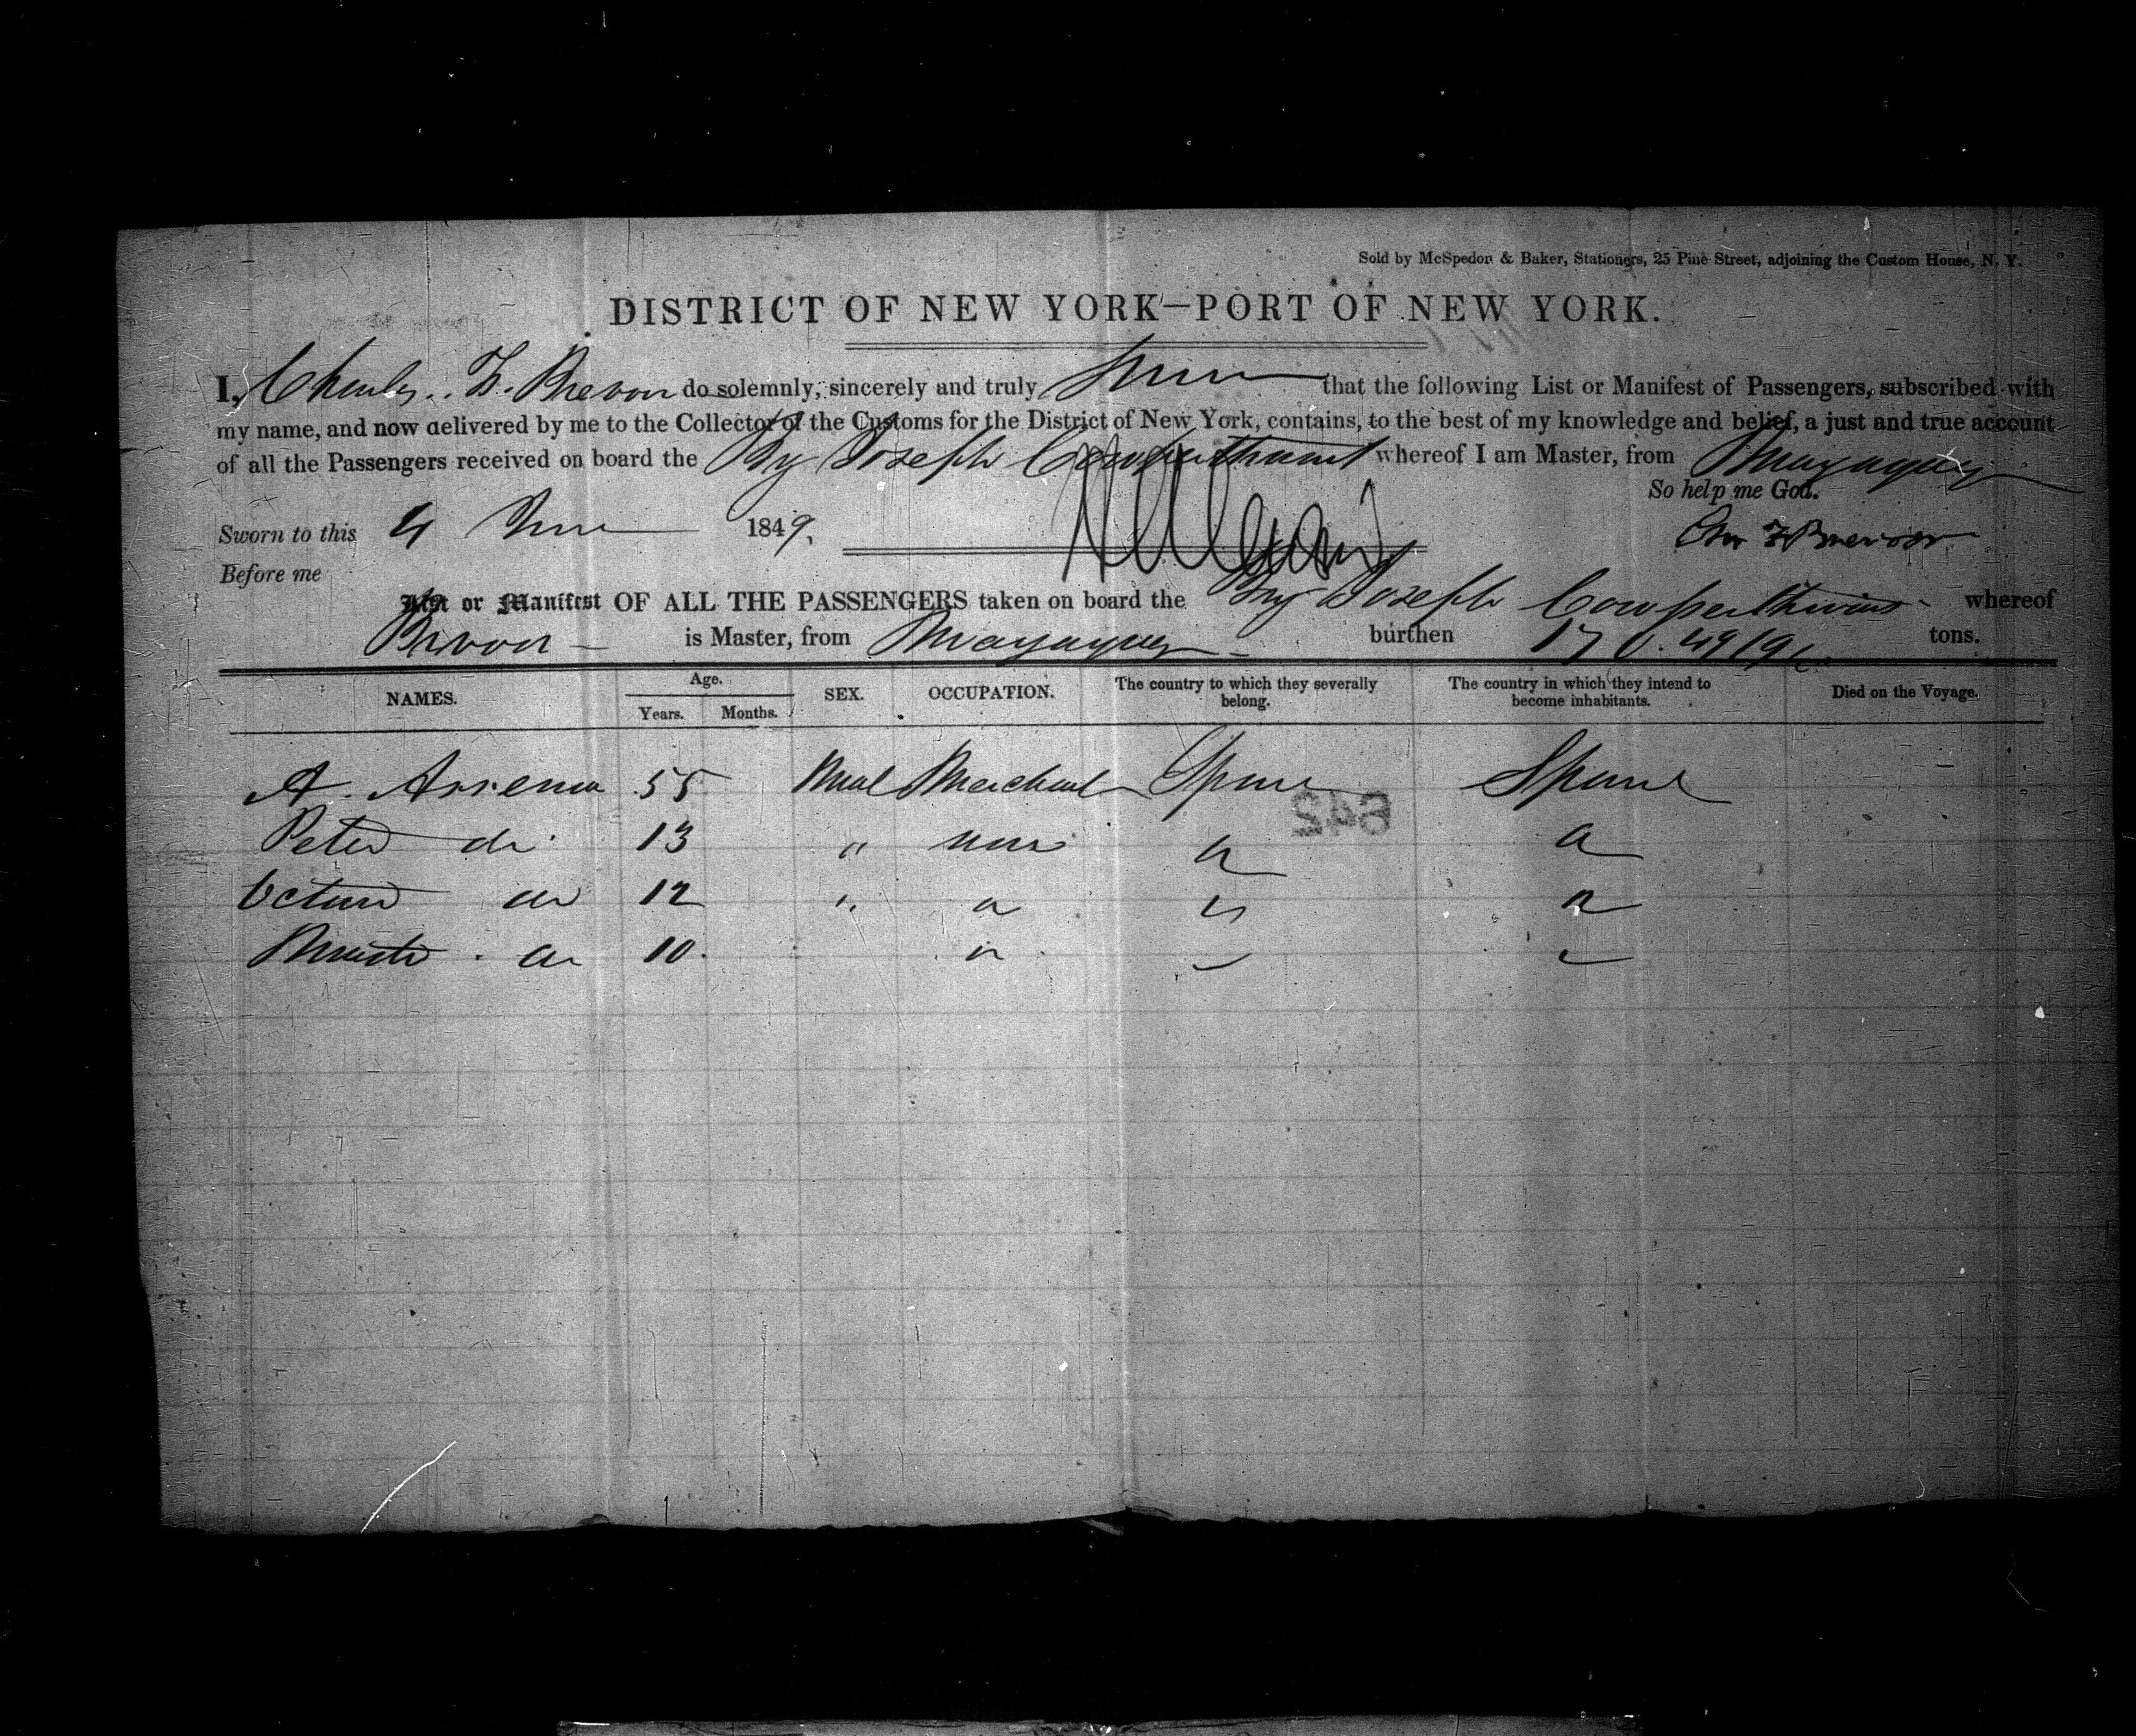 Sold by McSpedon & Baker, Stationers, 25 Pine Street, adjoining the Custom House, N. Y.
DISTRICT OF NEW YORK—PORT OF NEW YORK.
I, Charles F. Brevoor do solemnly, sincerely and truly swear that the following List or Manifest of Passengers, subscribed with
my name, and now delivered by me to the Collector of the Customs for the District of New York, contains, to the best of my knowledge and belief, a just and true account
of all the Passengers received on board the Brg Joseph Cowperthwait whereof I am Master, from Mayaguez
So help me God.
Sworn to this 4 June 1849.
Before me
List or Manifest OF ALL THE PASSENGERS taken on board the Brg Joseph Cowperthwait whereof
Brevoor is Master, from Mayaguez burthen tons.
NAMES. Age. SEX. OCCUPATION. The country to which they severally belong. The country in which they intend to become inhabitants. Died on the Voyage.
Years. Months.
A. 55 Male Merchant Spain Spain
642
Peter do 13 " none " "
do 12 " " " "
do 10. " " "